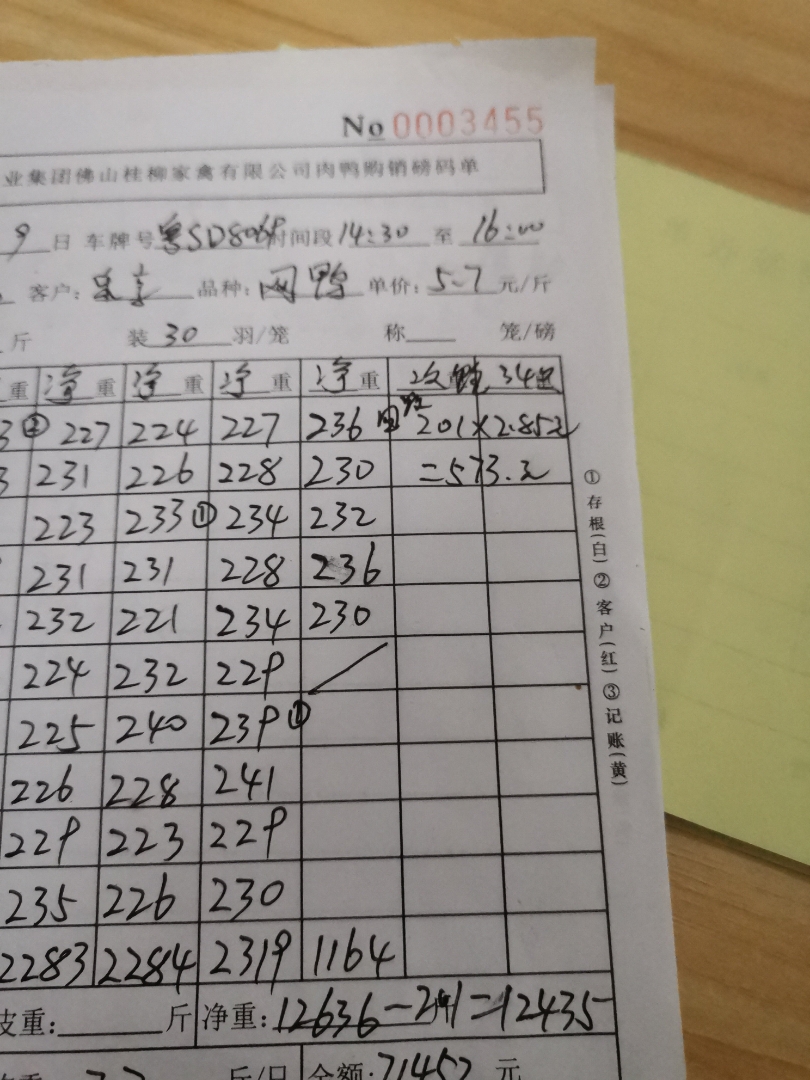 No 0003455
业集团佛山桂柳家禽有限公司肉鸭购销磅码单
9 日 车牌号 粤SD8069 时间段 14:30 至 16:00
客户: 品种: 网鸭 单价: 5.7 元/斤
斤 装 30 羽/笼 称 笼/磅
重 净 重 净 重 净 重 净 重 次鸭 34只
3 ② 227 224 227 236 201×2.85元
3 231 226 228 230 =573.元
223 233 ① 234 232
231 231 228 236
232 221 234 230
224 232 229
225 240 239 ①
226 228 241
229 223 229
235 226 230
2283 2284 2319 1164
皮重: 斤 净重: 12636-201=12435
斤/只 金额: 71452 元
①存根(白)②客户(红)③记账(黄)